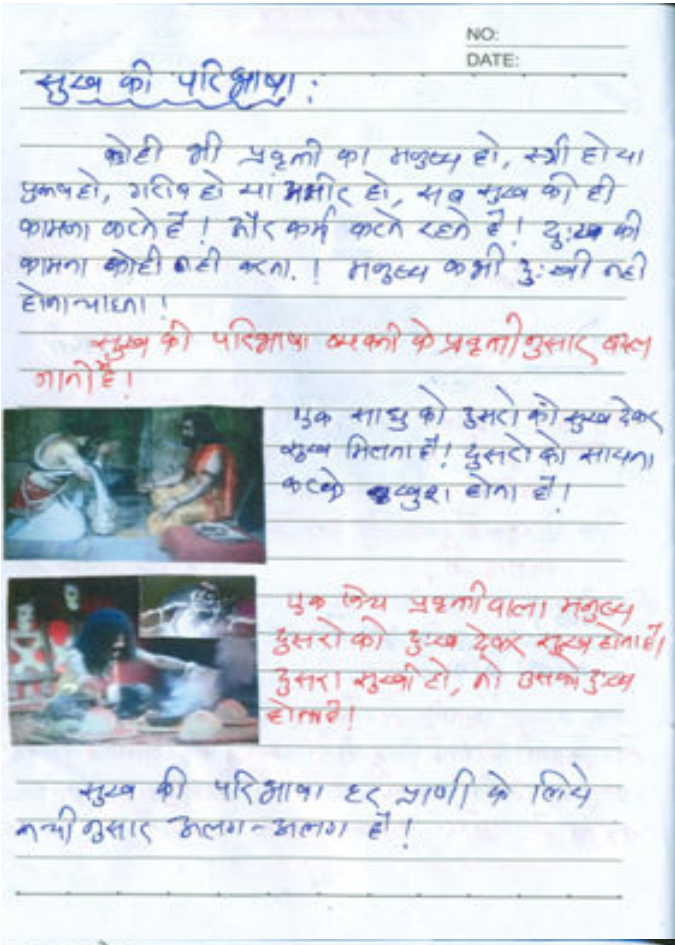 NO:
DATE:
सुख की परिभाषा :
कोही भी प्रवृत्ती का मनुष्य हो, स्त्री हो या
पुरूष हो, गरीब हो या अमीर हो, सब सुख की ही
कामना करते है ! और कर्म करते रहते है ! दु:ख की
कामना कोही नही करता. ! मनुष्य कभी दु:खी नही
होना चाहता !
सुख की परिभाषा व्यक्ती के प्रवृत्तीनुसार बदल
जाती है !
एक साधु को दुसरो को सुख देकर
सुख मिलता है ! दुसरो को सायता
करके खुश होता है !
एक निच प्रवृत्तीवाला मनुष्य
दुसरो को दु:ख देकर सुख होता है !
दुसरा सुखी हो, तो उसको दु:ख
होता है !
सुख की परिभाषा हर प्राणी के लिये
अलग-अलग है !